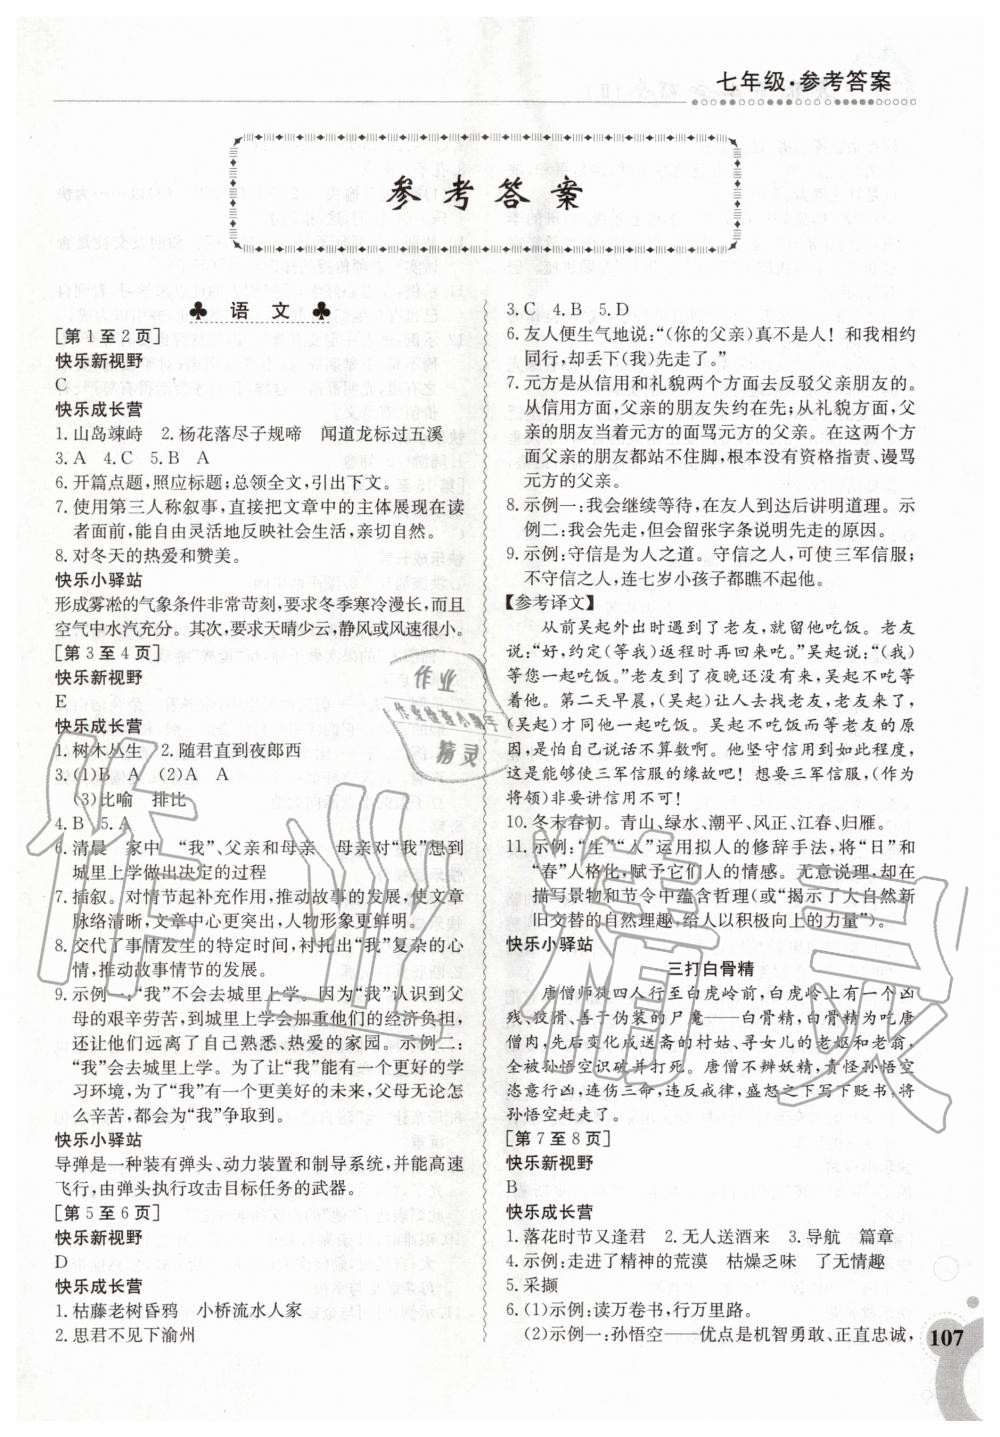 七年级·参考答案
参考答案
♣ 语 文 ♣
[第1至2页]
快乐新视野
C
快乐成长营
1.山岛竦峙 2.杨花落尽子规啼 闻道龙标过五溪
3.A 4.C 5.B A
6.开篇点题,照应标题;总领全文,引出下文。
7.使用第三人称叙事,直接把文章中的主体展现在读
者面前,能自由灵活地反映社会生活,亲切自然。
8.对冬天的热爱和赞美。
快乐小驿站
形成雾凇的气象条件非常苛刻,要求冬季寒冷漫长,而且
空气中水汽充分。其次,要求天晴少云,静风或风速很小。
[第3至4页]
快乐新视野
E
快乐成长营
1.树木丛生 2.随君直到夜郎西
3.(1)B A (2)A A
(3)比喻 排比
4.B 5.A
6.清晨 家中 “我”、父亲和母亲 母亲对“我”想到
城里上学做出决定的过程
7.插叙。对情节起补充作用,推动故事的发展,使文章
脉络清晰,文章中心更突出,人物形象更鲜明。
8.交代了事情发生的特定时间,衬托出“我”复杂的心
情,推动故事情节的发展。
9.示例一:“我”不会去城里上学。因为“我”认识到父
母的艰辛劳苦,到城里上学会加重他们的经济负担,
还让他们远离了自己熟悉、热爱的家园。示例二:
“我”会去城里上学。为了让“我”能有一个更好的学
习环境,为了“我”有一个更美好的未来,父母无论怎
么辛苦,都会为“我”争取到。
快乐小驿站
导弹是一种装有弹头、动力装置和制导系统,并能高速
飞行,由弹头执行攻击目标任务的武器。
[第5至6页]
快乐新视野
D
快乐成长营
1.枯藤老树昏鸦 小桥流水人家
2.思君不见下渝州
3.C 4.B 5.D
6.友人便生气地说:“(你的父亲)真不是人!和我相约
同行,却丢下(我)先走了。”
7.元方是从信用和礼貌两个方面去反驳父亲朋友的。
从信用方面,父亲的朋友失约在先;从礼貌方面,父
亲的朋友当着元方的面骂元方的父亲。在这两个方
面父亲的朋友都站不住脚,根本没有资格指责、谩骂
元方的父亲。
8.示例一:我会继续等待,在友人到达后讲明道理。示
例二:我会先走,但会留张字条说明先走的原因。
9.示例:守信是为人之道。守信之人,可使三军信服;
不守信之人,连七岁小孩子都瞧不起他。
【参考译文】
从前吴起外出时遇到了老友,就留他吃饭。老友
说:“好,约定(等我)返程时再回来吃。”吴起说:“(我)
等您一起吃饭。”老友到了夜晚还没有来,吴起不吃等
着他。第二天早晨,(吴起)让人去找老友,老友来了,
(吴起)才同他一起吃饭。吴起不吃饭而等老友的原
因,是怕自己说话不算数啊。他坚守信用到如此程度,
这是能够使三军信服的缘故吧!想要三军信服,(作为
将领)非要讲信用不可!
10.冬末春初。青山、绿水、潮平、风正、江春、归雁。
11.示例:“生”“入”运用拟人的修辞手法,将“日”和
“春”人格化,赋予它们人的情态。无意说理,却在
描写景物和节令中蕴含哲理(或“揭示了大自然新
旧交替的自然理趣,给人以积极向上的力量”)。
快乐小驿站
三打白骨精
唐僧师徒四人行至白虎岭前,白虎岭上有一个凶
残、狡猾、善于伪装的尸魔——白骨精,白骨精为吃唐
僧肉,先后变化成送斋的村姑、寻女儿的老妪和老翁,
全被孙悟空识破并打死。唐僧不辨妖精,责怪孙悟空
恣意行凶,连伤三命,违反戒律,盛怒之下写下贬书,将
孙悟空赶走了。
[第7至8页]
快乐新视野
B
快乐成长营
1.落花时节又逢君 2.无人送酒来 3.导航 篇章
4.示例:走进了精神的荒漠 枯燥乏味 了无情趣
5.采撷
6.(1)示例:读万卷书,行万里路。
(2)示例一:孙悟空——优点是机智勇敢、正直忠诚,
107
作业
作业检查小帮手
精灵
作业精灵